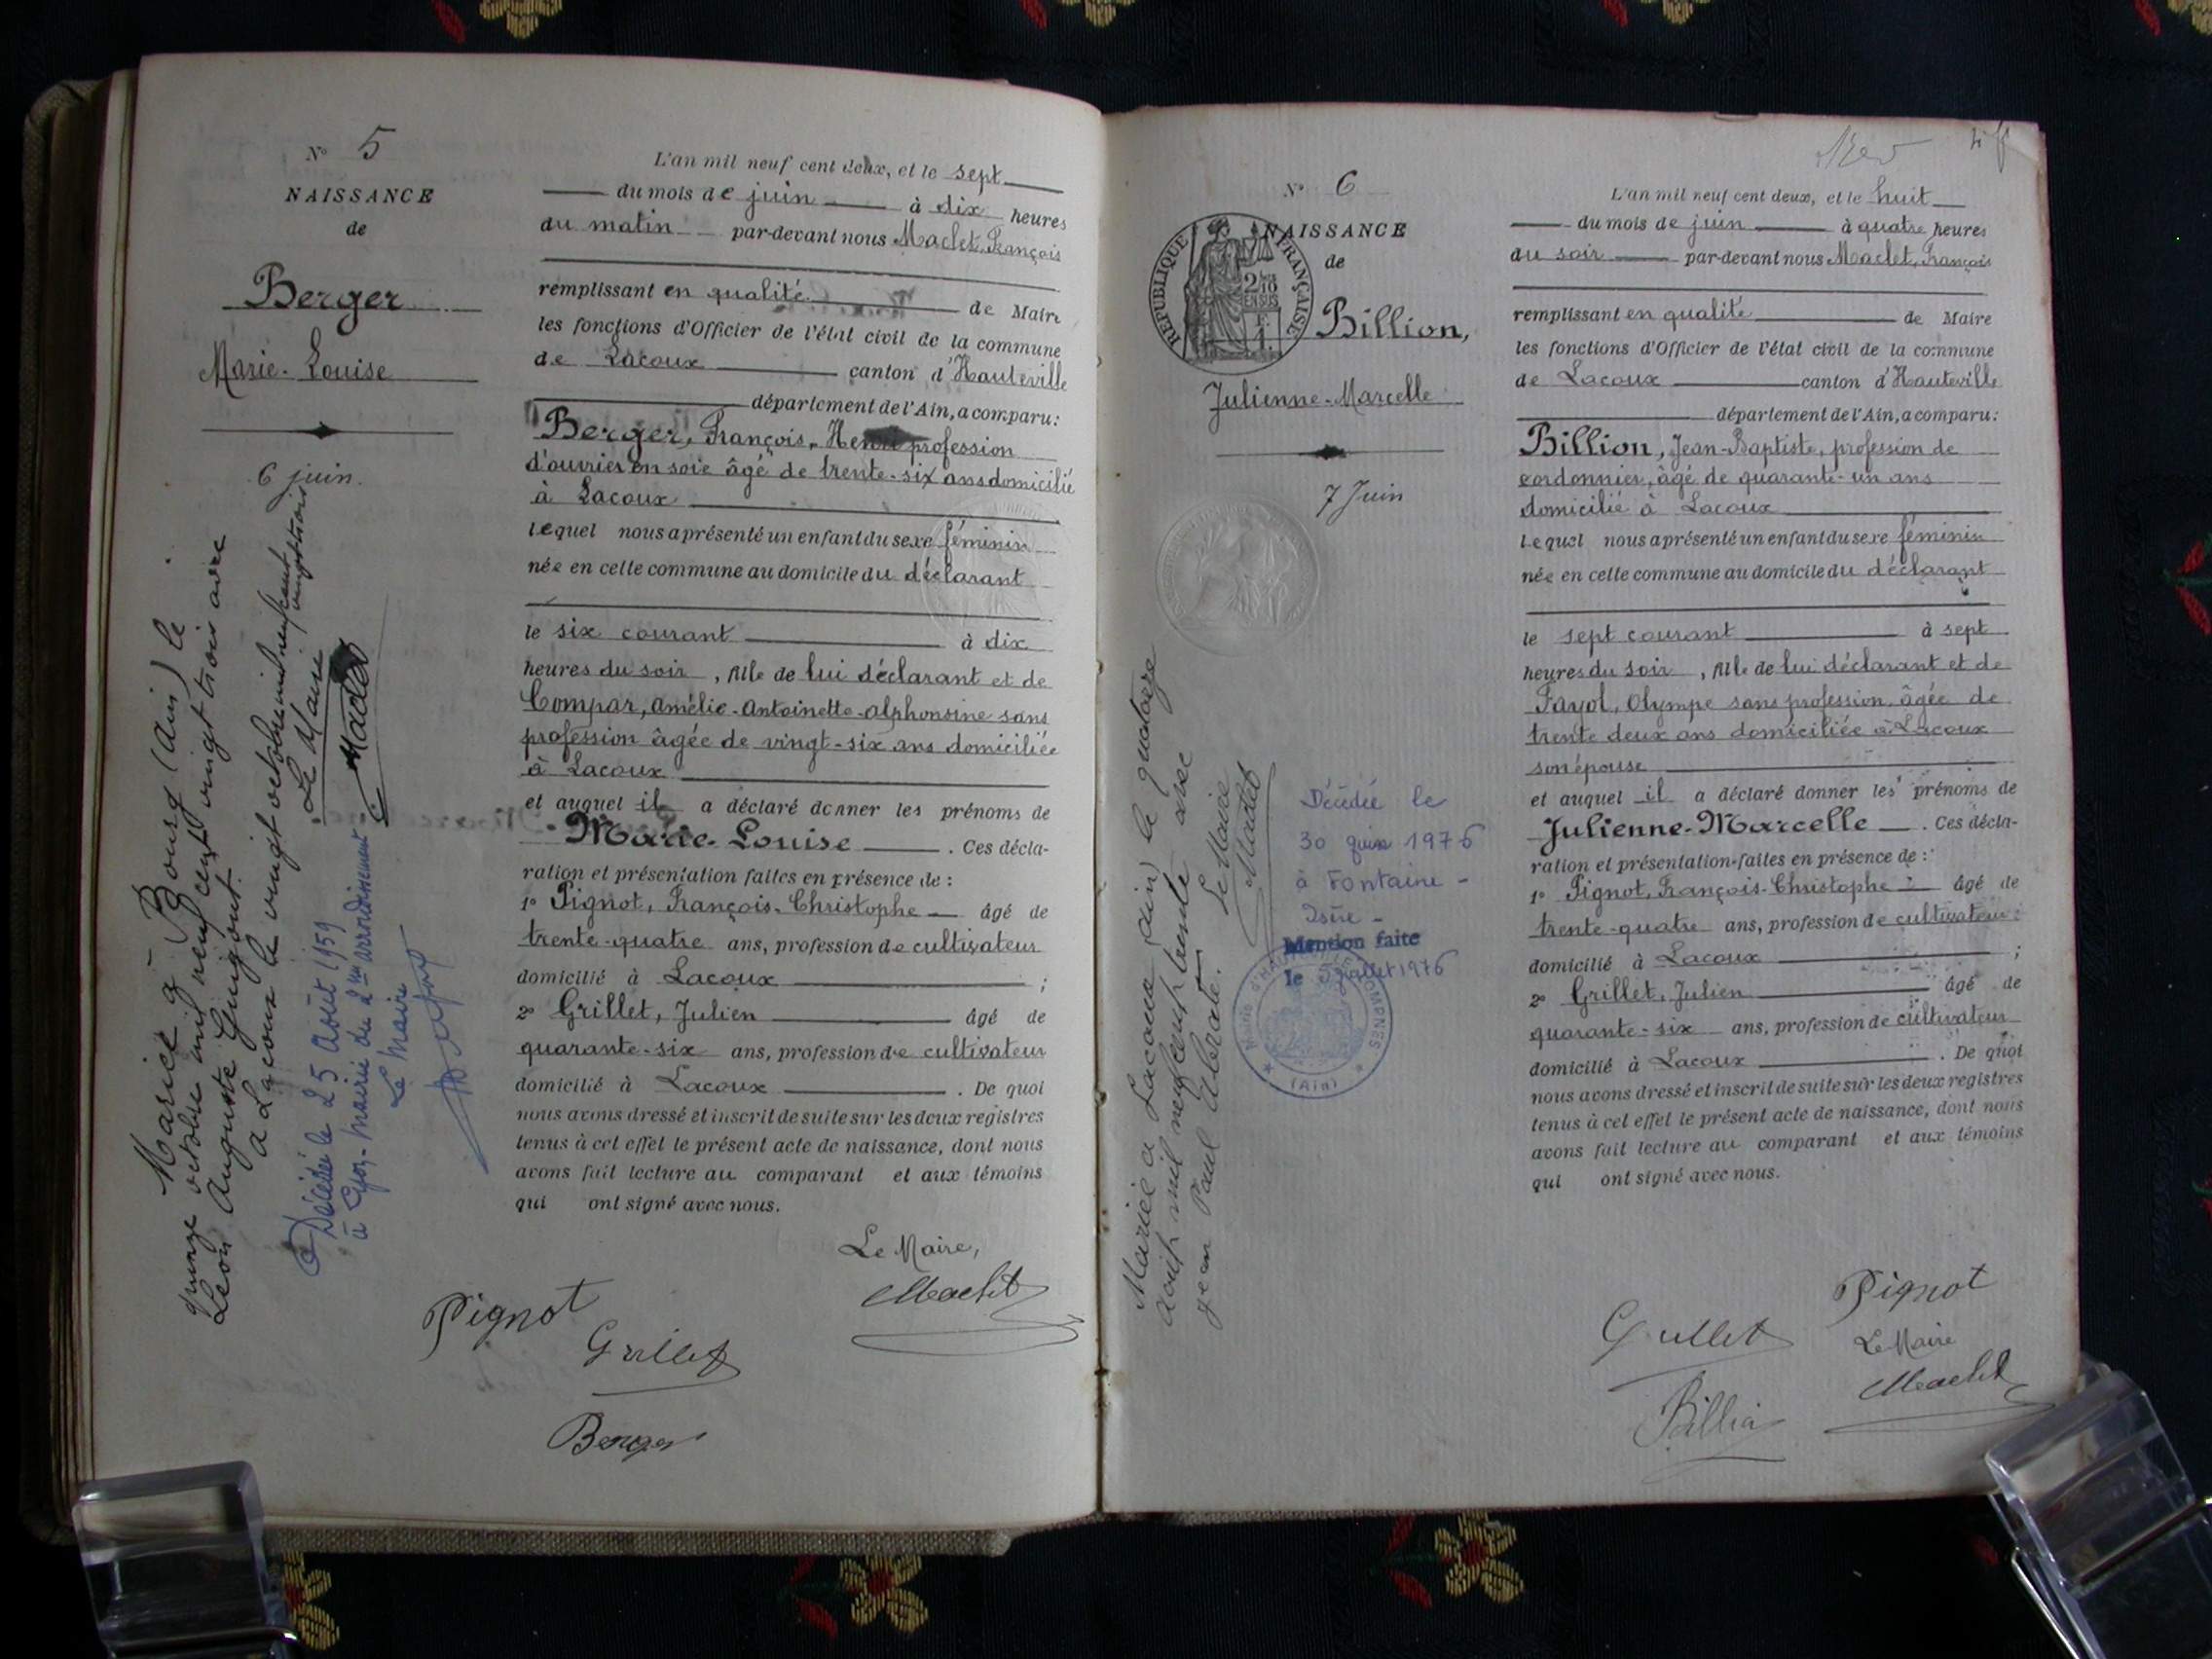 N° 5
NAISSANCE
de
Berger
Marie-Louise
6 juin.
Mariée à Bourg (Ain) le
quinze octobre mil neuf cent vingt trois avec
Léon Auguste Guigout.
à Lacoux le vingt octobre mil neuf cent vingt trois
Le Maire
Maclet
Décédée le 25 Août 1959
à Lyon - mairie du 2me arrondissement
Le Maire
L'an mil neuf cent deux, et le sept
du mois de juin à dix heures
du matin par-devant nous Maclet, François
remplissant en qualité de Maire
les fonctions d'Officier de l'état civil de la commune
de Lacoux canton d'Hauteville
département de l'Ain, a comparu:
Berger, François, Henri profession
d'ouvrier en soie âgé de trente-six ans domicilié
à Lacoux
lequel nous a présenté un enfant du sexe féminin
née en cette commune au domicile du déclarant
le six courant à dix
heures du soir, fille de lui déclarant et de
Compar, Amélie-Antoinette-Alphonsine sans
profession âgée de vingt-six ans domiciliée
à Lacoux
et auquel il a déclaré donner les prénoms de
Marie-Louise. Ces décla-
ration et présentation faites en présence de :
1° Pignot, François-Christophe âgé de
trente-quatre ans, profession de cultivateur
domicilié à Lacoux ;
2° Grillet, Julien âgé de
quarante-six ans, profession de cultivateur
domicilié à Lacoux. De quoi
nous avons dressé et inscrit de suite sur les deux registres
tenus à cet effet le présent acte de naissance, dont nous
avons fait lecture au comparant et aux témoins
qui ont signé avec nous.
Le Maire,
Pignot
Maclet
Grillet
Berger
N° 6
NAISSANCE
de
RÉPUBLIQUE FRANÇAISE
2/10 EN SUS
Billion,
Julienne-Marcelle
7 Juin
Mariée à Lacoux (Ain) le quatorze
août mil neuf cent trente avec
Jean Paul
Le Maire
Maclet
Décédée le
30 juin 1976
à Fontaine -
Isère -
Mention faite
le 5 juillet 1976
(Ain)
L'an mil neuf cent deux, et le huit
du mois de juin à quatre heures
du soir par-devant nous Maclet, François
remplissant en qualité de Maire
les fonctions d'Officier de l'état civil de la commune
de Lacoux canton d'Hauteville
département de l'Ain, a comparu:
Billion, Jean-Baptiste, profession de
cordonnier, âgé de quarante-un ans
domicilié à Lacoux
lequel nous a présenté un enfant du sexe féminin
née en cette commune au domicile du déclarant
le sept courant à sept
heures du soir, fille de lui déclarant et de
Fayol, Olympe sans profession, âgée de
trente deux ans domiciliée à Lacoux
son épouse
et auquel il a déclaré donner les prénoms de
Julienne-Marcelle. Ces décla-
ration et présentation faites en présence de :
1° Pignot, François-Christophe âgé de
trente-quatre ans, profession de cultivateur
domicilié à Lacoux ;
2° Grillet, Julien âgé de
quarante-six ans, profession de cultivateur
domicilié à Lacoux. De quoi
nous avons dressé et inscrit de suite sur les deux registres
tenus à cet effet le présent acte de naissance, dont nous
avons fait lecture au comparant et aux témoins
qui ont signé avec nous.
Pignot
Grillet
Le Maire
Maclet
Billion